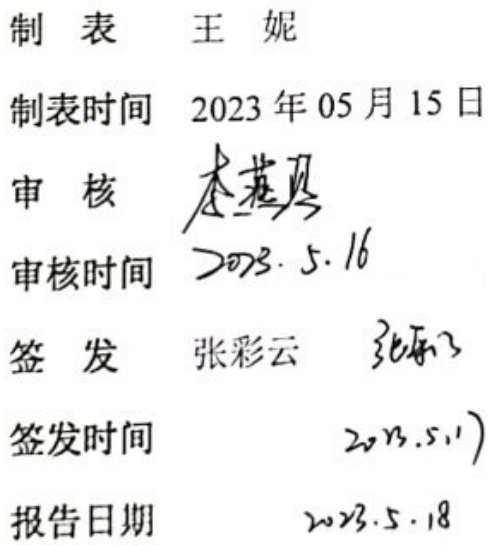 制 表 王 妮
制表时间 2023 年 05 月 15 日
审 核 李燕
审核时间 2023.5.16
签 发 张彩云 张彩云
签发时间 2023.5.17
报告日期 2023.5.18